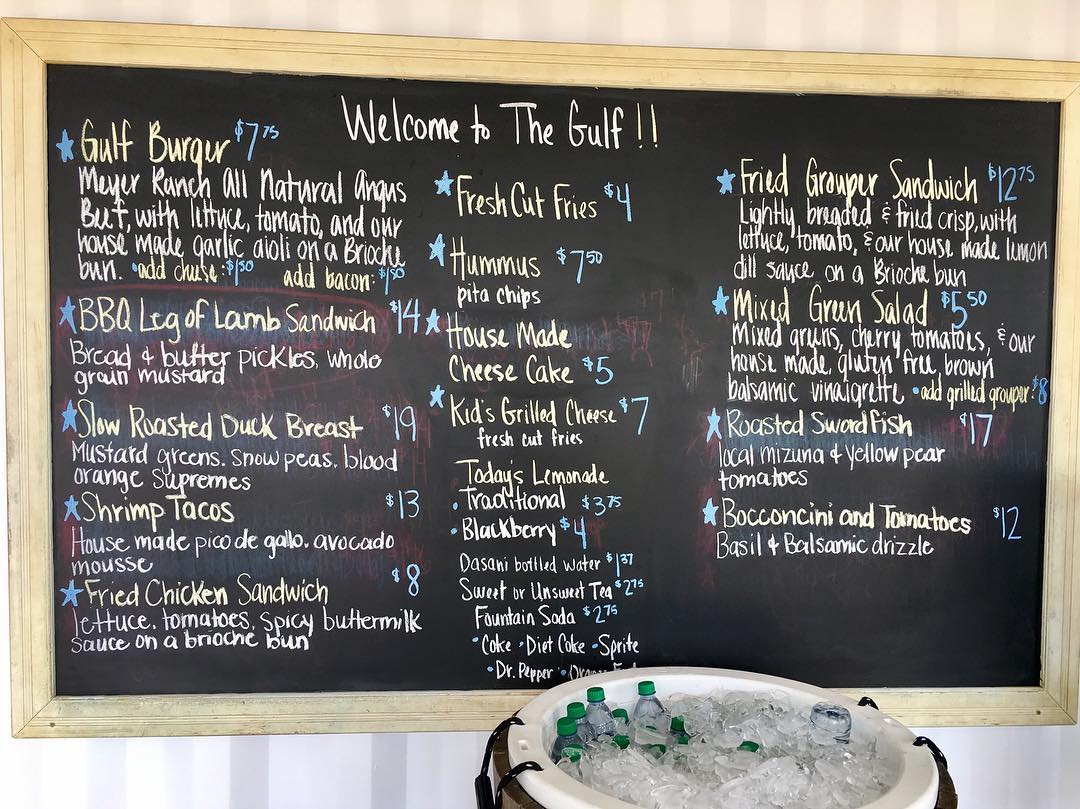 Welcome to The Gulf !!
Gulf Burger $7 75
Meyer Ranch All Natural Angus
Beef, with lettuce, tomato, and our
house made garlic aioli on a Brioche
bun. • add cheese: $1 50 add bacon: $1 50
BBQ Leg of Lamb Sandwich $14
Bread & butter pickles, whole
grain mustard
Slow Roasted Duck Breast $19
Mustard greens. snow peas. blood
orange supremes
Shrimp Tacos $13
House made pico de gallo. avocado
mousse
Fried Chicken Sandwich $8
lettuce. tomatoes, spicy buttermilk
sauce on a brioche bun
Fresh Cut Fries $4
Hummus $7 50
pita chips
House Made
Cheese Cake $5
Kid's Grilled Cheese $7
fresh cut fries
Today's Lemonade
• Traditional $3 75
• Blackberry $4
Dasani bottled water $1 37
Sweet or Unsweet Tea $2 75
Fountain Soda $2 75
• Coke • Diet Coke • Sprite
• Dr. Pepper •
Fried Grouper Sandwich $12 75
Lightly breaded & fried crisp, with
lettuce, tomato, & our house made lemon
dill sauce on a Brioche bun
Mixed Green Salad $5 50
Mixed greens, cherry tomatoes, & our
house made, gluten free, brown
balsamic vinaigrette • add grilled grouper: $8
Roasted Swordfish $17
local mizuna & yellow pear
tomatoes
Bocconcini and Tomatoes $12
Basil & Balsamic drizzle